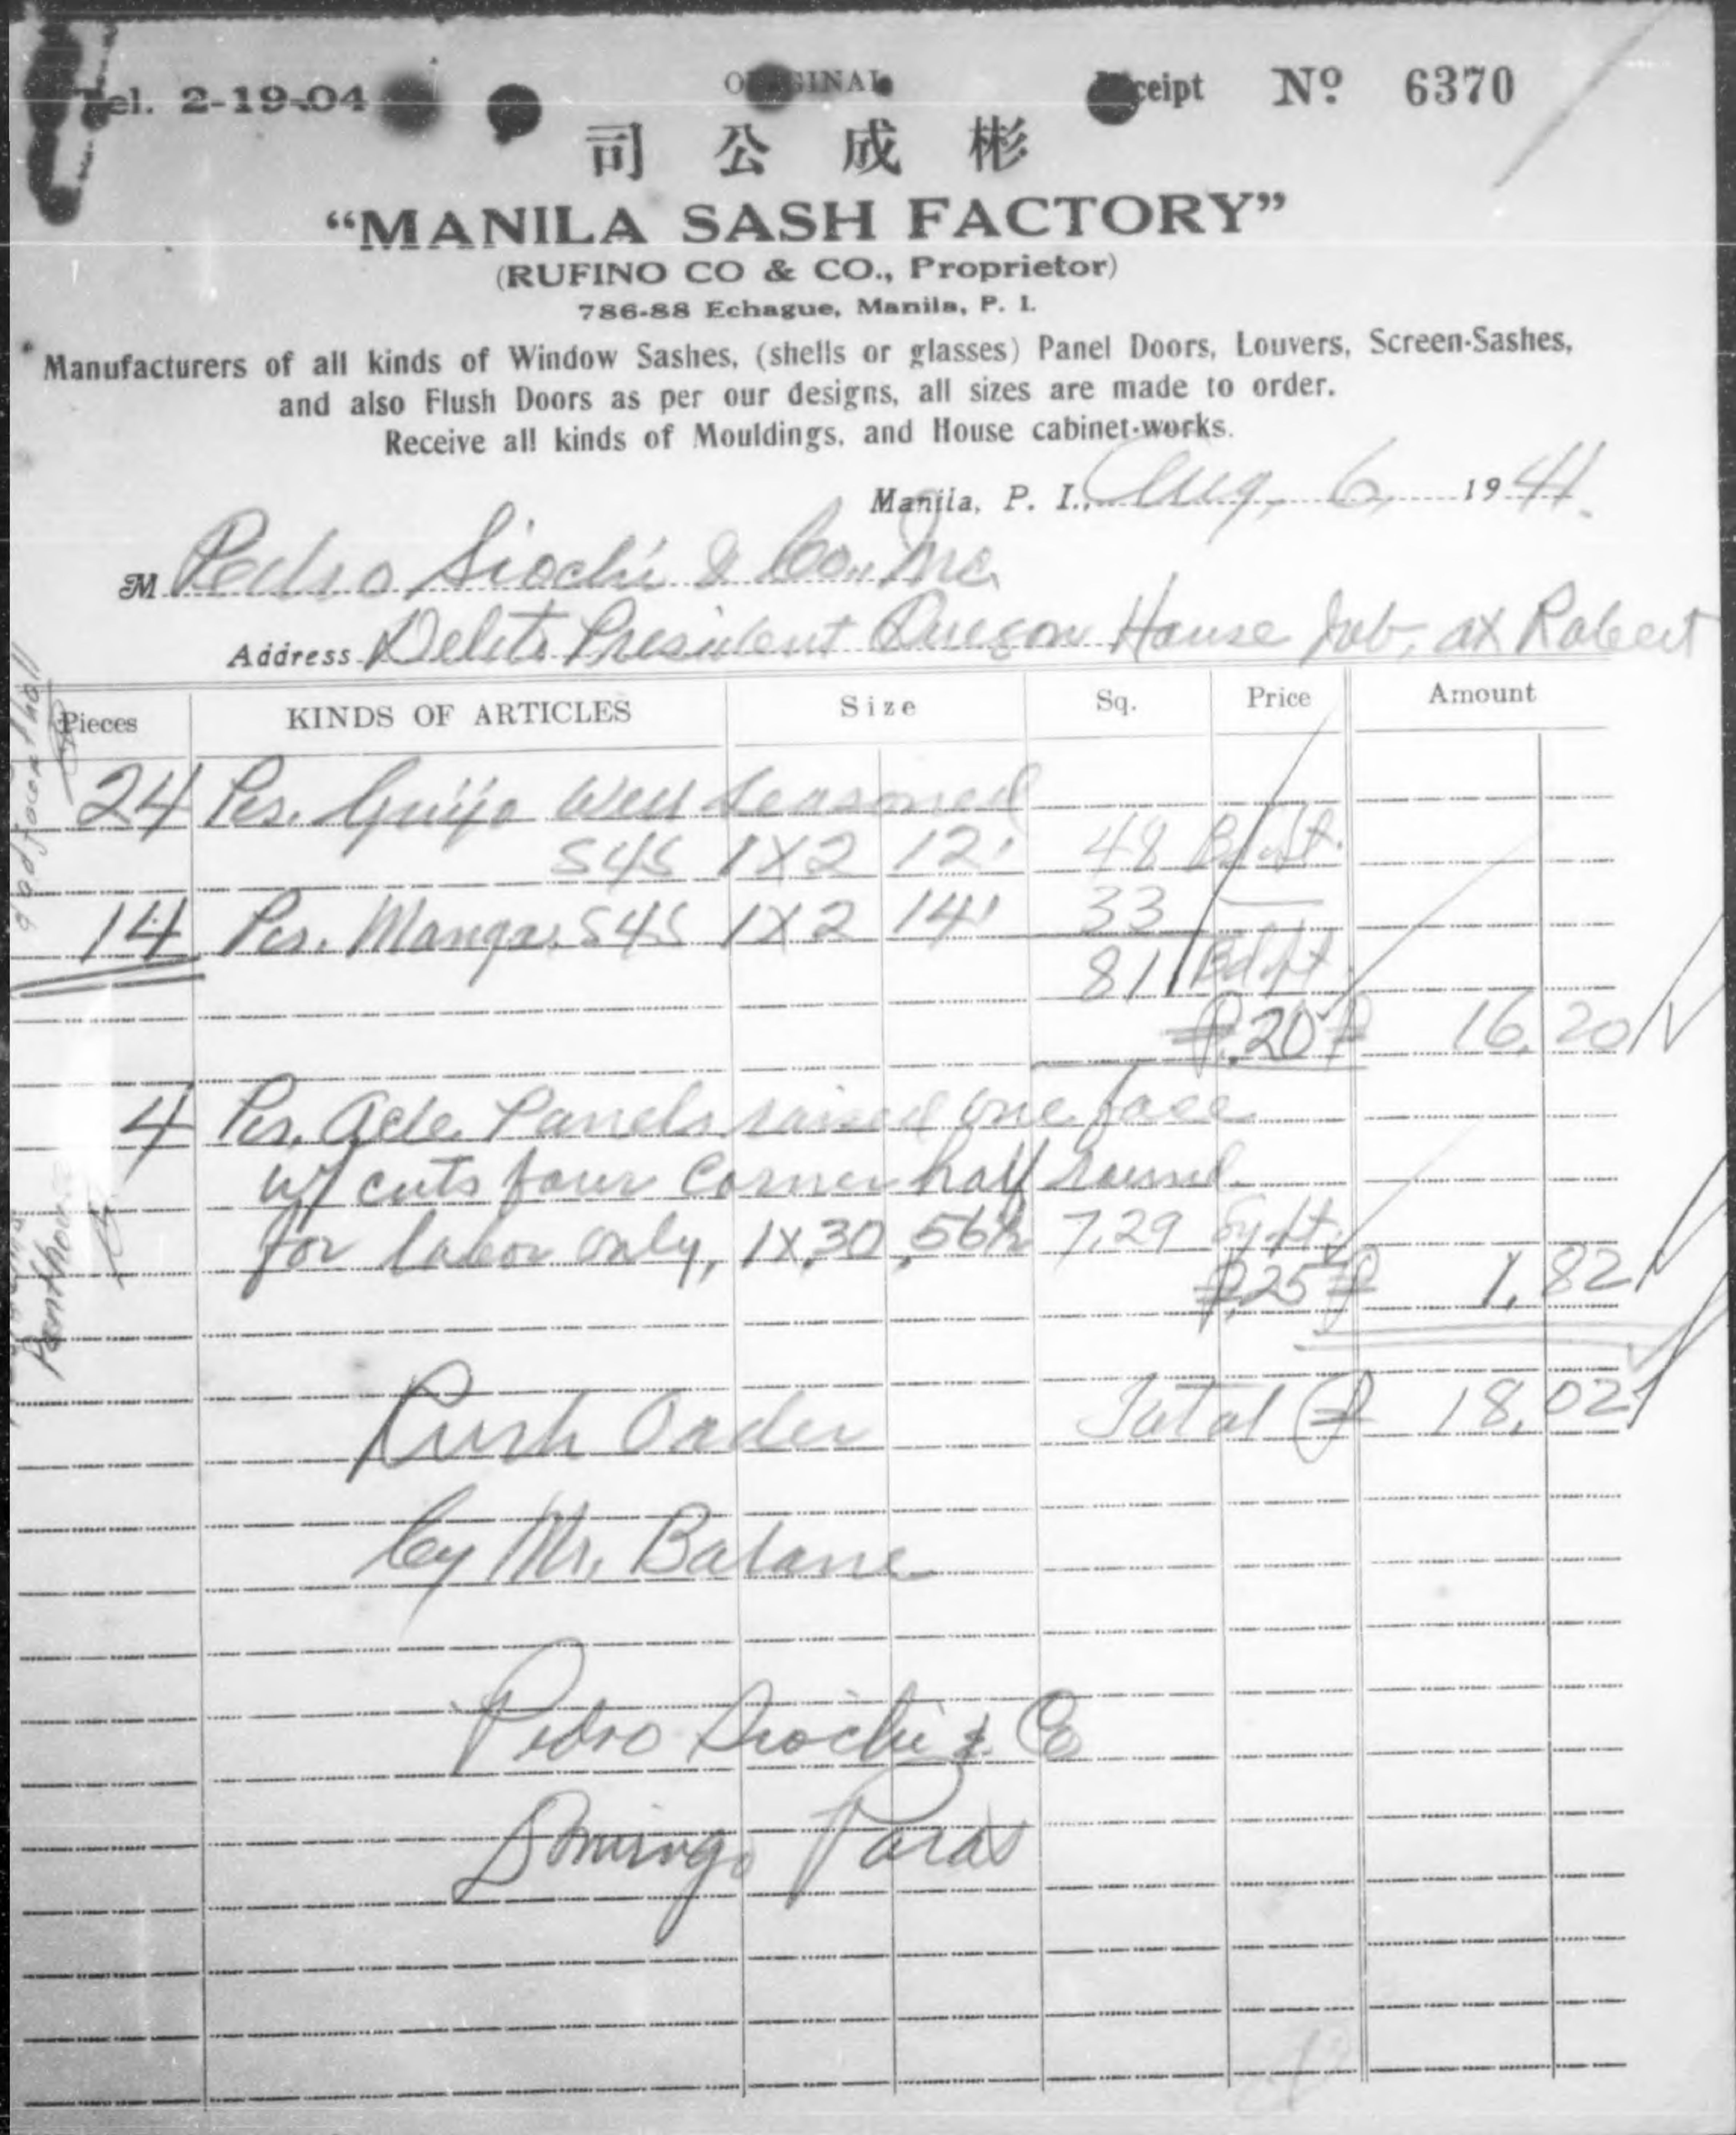 Tel. 2-19-04 ORIGINAL Receipt Nº 6370
司公成彬
“MANILA SASH FACTORY”
(RUFINO CO & CO., Proprietor)
786-88 Echague, Manila, P. I.
Manufacturers of all kinds of Window Sashes, (shells or glasses) Panel Doors, Louvers, Screen-Sashes,
and also Flush Doors as per our designs, all sizes are made to order.
Receive all kinds of Mouldings, and House cabinet-works.
Manila, P. I., Aug. 6, 1941.
M Pedro Siochi & Co., Inc.
Address President Quezon House Job, at Robert
Pieces KINDS OF ARTICLES Size Sq. Price Amount
24 Pcs. Guijo Well Seasoned
S4S 1X2 12' 48 Bd ft.
14 Pcs. S4S 1X2 14' 33
81 Bd ft.
₱.20 ₱ 16.20
4 Pcs. Panels raised one face
w/ cuts four Corner half round
for labor only, 1X.30 7.29 Sq ft.
₱.25 ₱ 1.82
Rush Order Total ₱ 18.02
by Mr. Balane
Pedro Siochi & Co
Domingo Paras
Penthouse